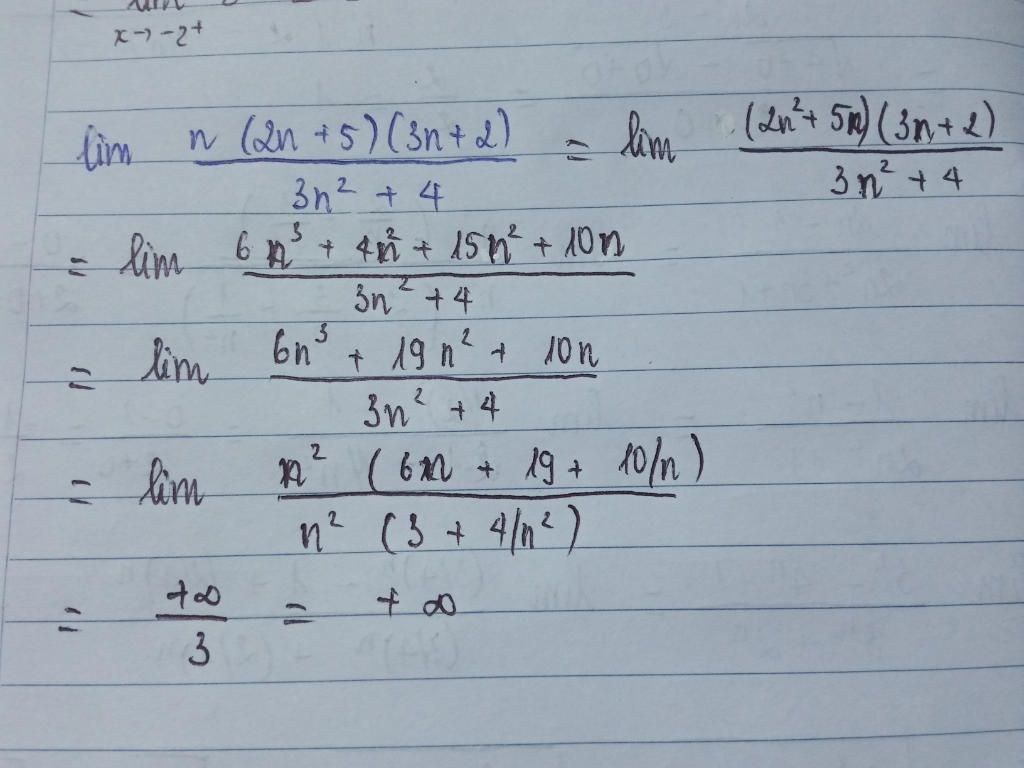 = lim
x → -2⁺
lim n (2n + 5) (3n + 2) / 3n² + 4 = lim (2n² + 5n) (3n + 2) / 3n² + 4
= lim 6n³ + 4n² + 15n² + 10n / 3n² + 4
= lim 6n³ + 19n² + 10n / 3n² + 4
= lim n² (6n + 19 + 10/n) / n² (3 + 4/n²)
= +∞ / 3 = +∞